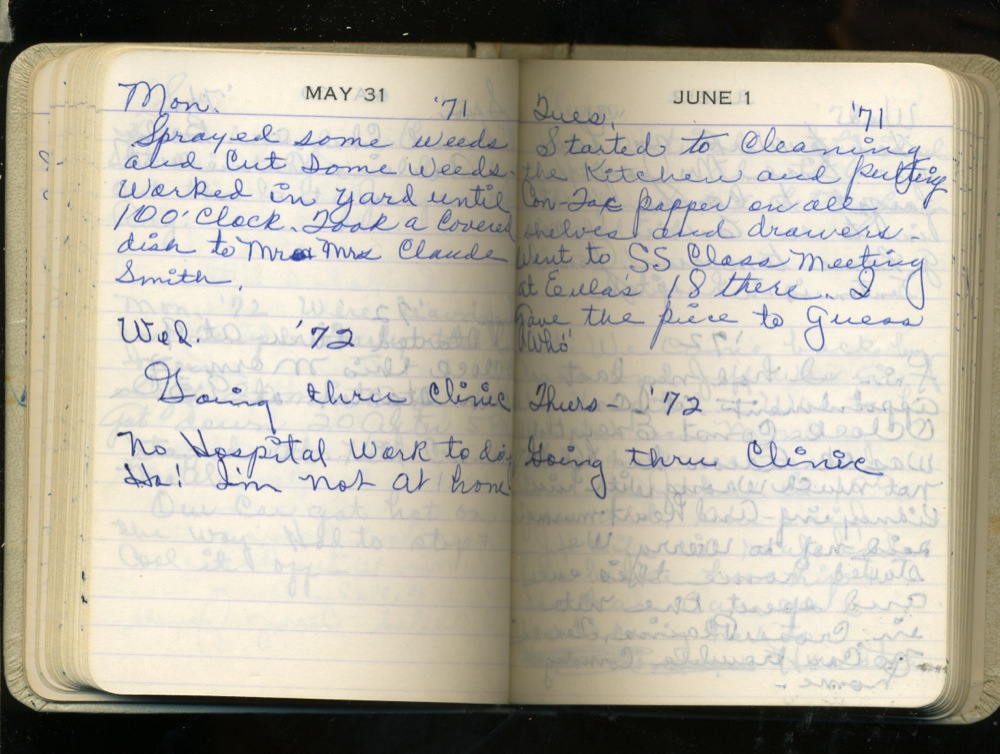 MAY 31
Mon. '71
Sprayed some weeds
and Cut Some Weeds.
Worked in yard until
1 O'Clock. Took a Covered
dish to Mr Mrs Claude
Smith.
Wed. '72
Going thru Clinic
No Hospital Work to do,
Ha! I'm not at home
JUNE 1
Tues. '71
Started to Cleaning
the Kitchen and putting
Con-Tac papper on all
shelves and drawers.
Went to SS Class Meeting
at Eula's 18 there. I
gave the piece to Guess
Who'
Thurs- '72
Going thru Clinic